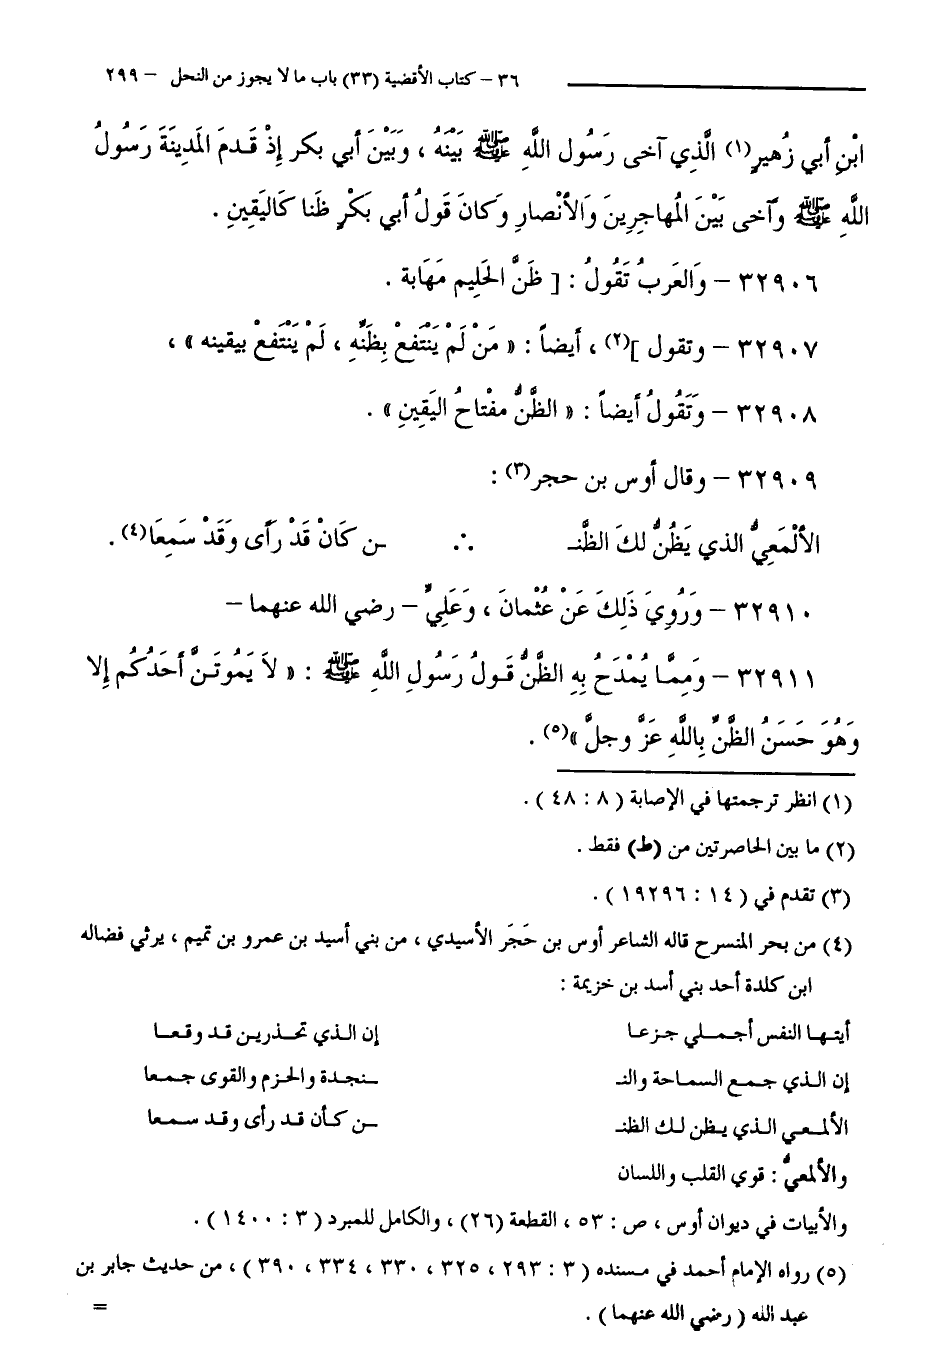 ٣٦ – كتاب الأقضية (٣٣) باب ما لا يجوز من النحل – ٢٩٩
ابْنِ أبي زُهيرٍ(١) الَّذِي آخى رَسُول اللَّهِ ﷺ بَيْنَهُ ، وَبَيْنَ أبي بكر إذْ قَدمَ المَدِينَةَ رَسُولُ
اللَّهِ ﷺ وآخى بَيْنَ المُهاجِرِينَ وَالأنْصارِ وكانَ قَولُ أبي بَكْرٍ ظَنا كَاليَقِينِ .
٣٢٩٠٦ – وَالعَربُ تَقُولُ : [ ظَنَّ الحَلِيم مَهَابة .
٣٢٩٠٧ – وتقول ](٢) ، أيضاً : « مَنْ لَمْ يَنْتَفعْ بِظَنَّهِ ، لَمْ يَنْتَفعْ بيقينه » ،
٣٢٩٠٨ – وَتَقُولُ أيضاً : « الظَّنُّ مفْتاحُ اليَقِينِ » .
٣٢٩٠٩ – وقال أوس بن حجر(٣) :
الألْمَعِيُّ الذي يَظُنُّ لكَ الظَّنـ ∴ ـن كَانْ قَدْ رَأى وقَدْ سَمِعَا(٤) .
٣٢٩١٠ – وَرُوِيَ ذَلِكَ عَنْ عُثْمانَ ، وَعَلِيٍّ – رضي الله عنهما –
٣٢٩١١ – وَمِمَّا يُمْدَحُ بِهِ الظَّنُّ قَولُ رَسُولِ اللَّهِ ﷺ : « لاَ يَمُوتَنَّ أحَدُكُم إلا
وَهُوَ حَسَنُ الظَّنِّ بِاللَّهِ عَزَّ وجلَّ »(٥) .
(١) انظر ترجمتها في الإصابة ( ٨ : ٤٨ ) .
(٢) ما بين الحاصرتين من (ط) فقط .
(٣) تقدم في ( ١٤ : ١٩٢٩٦ ) .
(٤) من بحر المنسرح قاله الشاعر أوس بن حَجَر الأسيدي ، من بني أسيد بن عمرو بن تميم ، يرثي فضاله
ابن كلدة أحد بني أسد بن خزيمة :
أيتهـا النفس أجمـلي جـزعا إن الـذي تحـذريـن قـد وقعـا
إن الـذي جـمع السماحة والنـ ـنجـدة والحـزم والقوى جـمعا
الألمـعي الـذي يـظن لـك الظنـ ـن كـأن قـد رأى وقـد سـمعا
والألمعيُّ : قوي القلب واللسان
والأبيات في ديوان أوس ، ص : ٥٣ ، القطعة (٢٦) ، والكامل للمبرد ( ٣ : ١٤٠٠ ) .
(٥) رواه الإمام أحمد في مسنده ( ٣ : ٢٩٣ ، ٣٢٥ ، ٣٣٠ ، ٣٣٤ ، ٣٩٠ ) ، من حديث جابر بن
عبد الله ( رضي الله عنهما ) .
=